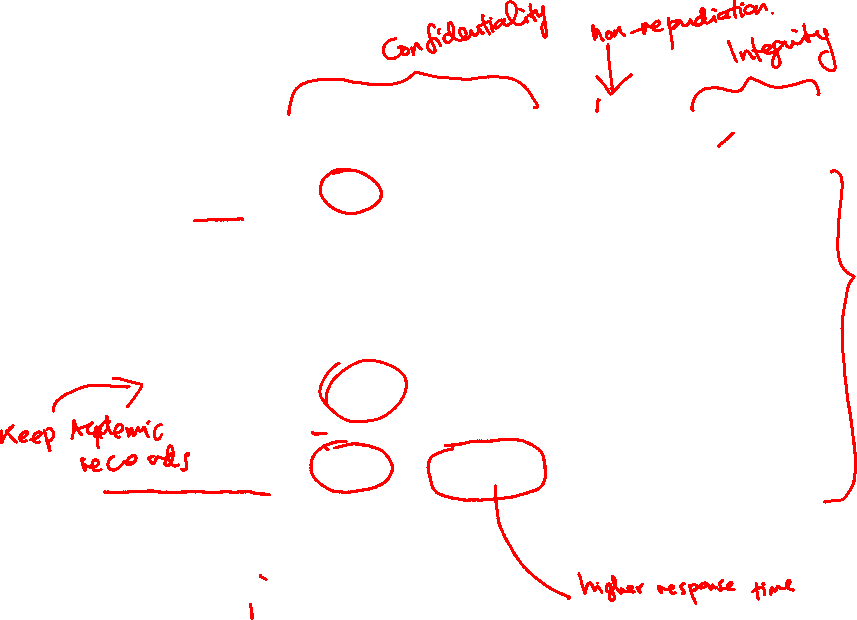 Confidentiality
non-repudiation.
Integrity
Keep Academic
records
higher response time